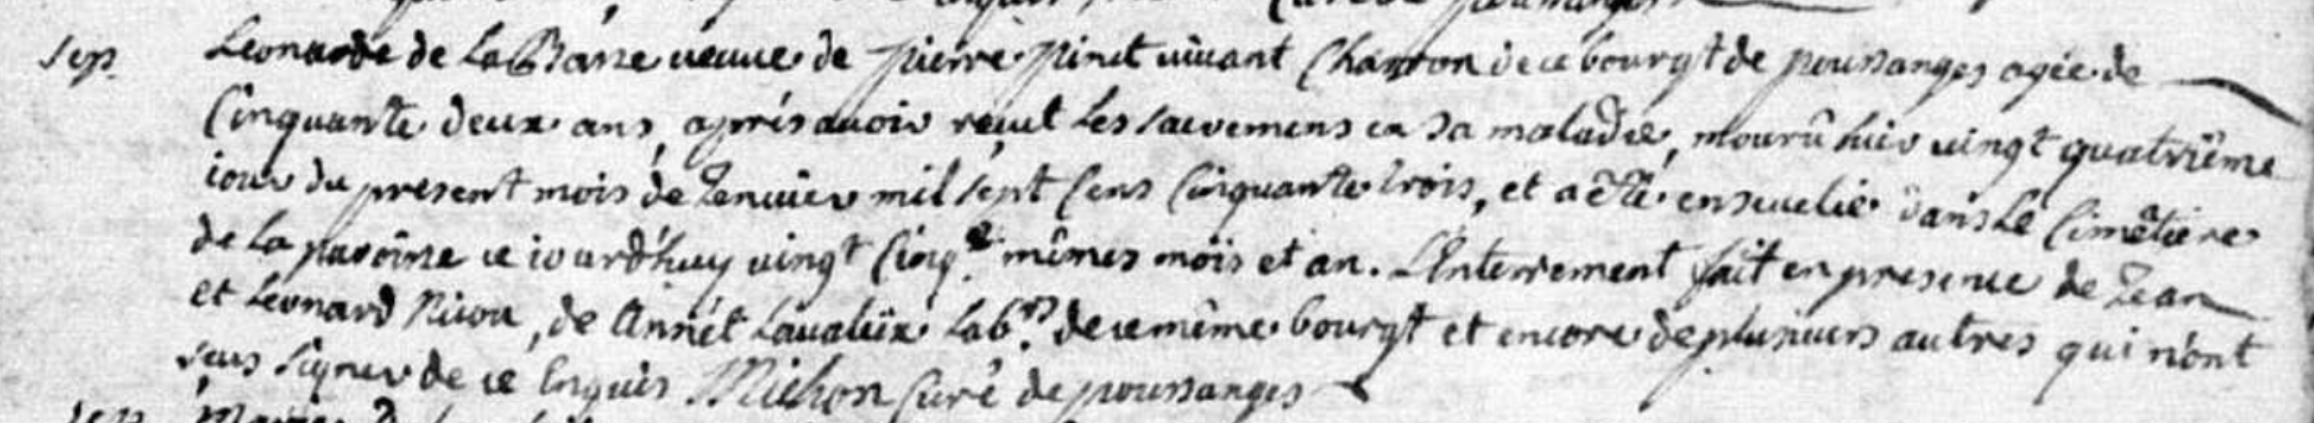 Sep. Leonarde de La Basse veuve de pierre pinet vivant Charron de ce bourgt de poussanges agée de
Cinquante deux ans, aprés avoir reçut Les sacremens en sa maladie, mourû hier vingt quatriême
iour du present mois de Jenvier mil sept Cens Cinquante trois, et a êté ensevelie dans Le Cimêtiere
de La paroisse ce iourd'huy vingt Cinq.e mêmes mois et an. L'Enterrement fait en presence de Jean
et Leonard, de Annét Lab.rs de ce même bourgt et encore de plusieurs autres qui n'ont
sçus signer de ce Enquis Michon Curé de poussanges
Sep.